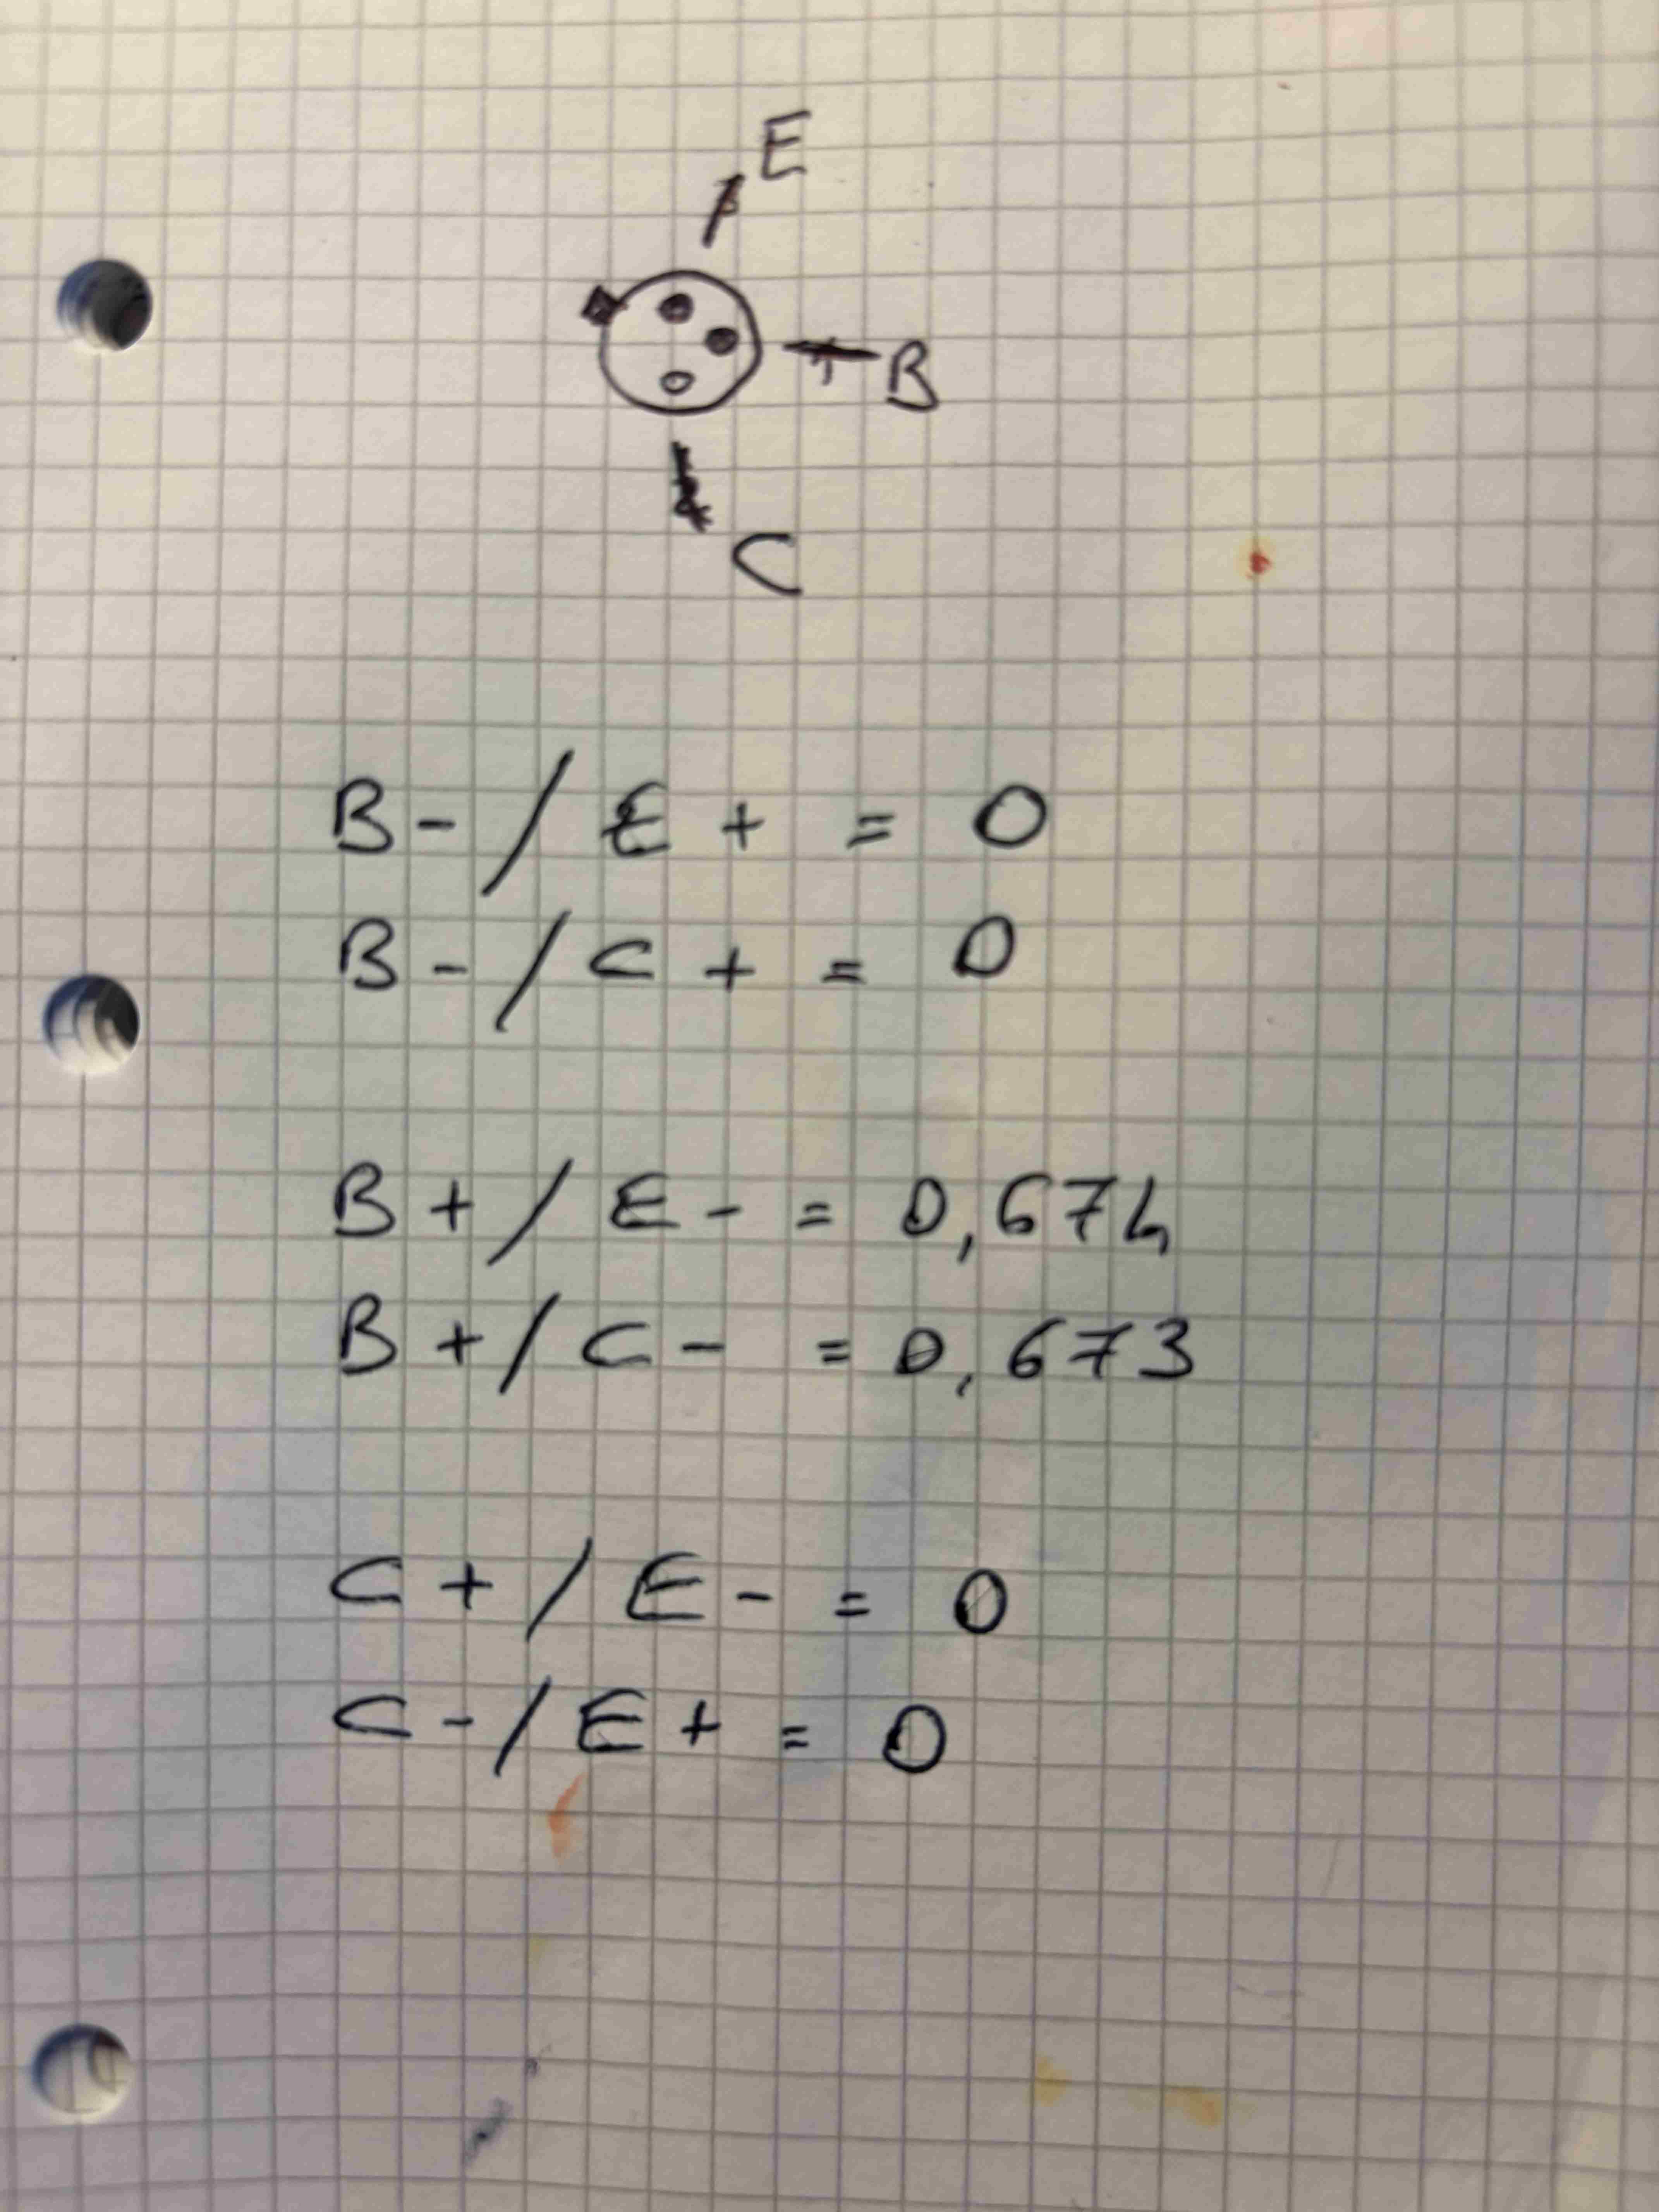 E
B
C
B - / E + = 0
B - / C + = 0
B + / E - = 0,674
B + / C - = 0,673
C + / E - = 0
C - / E + = 0